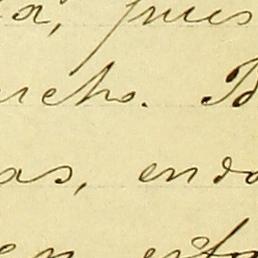 a, pues
ucho. B
as, endo
en esto